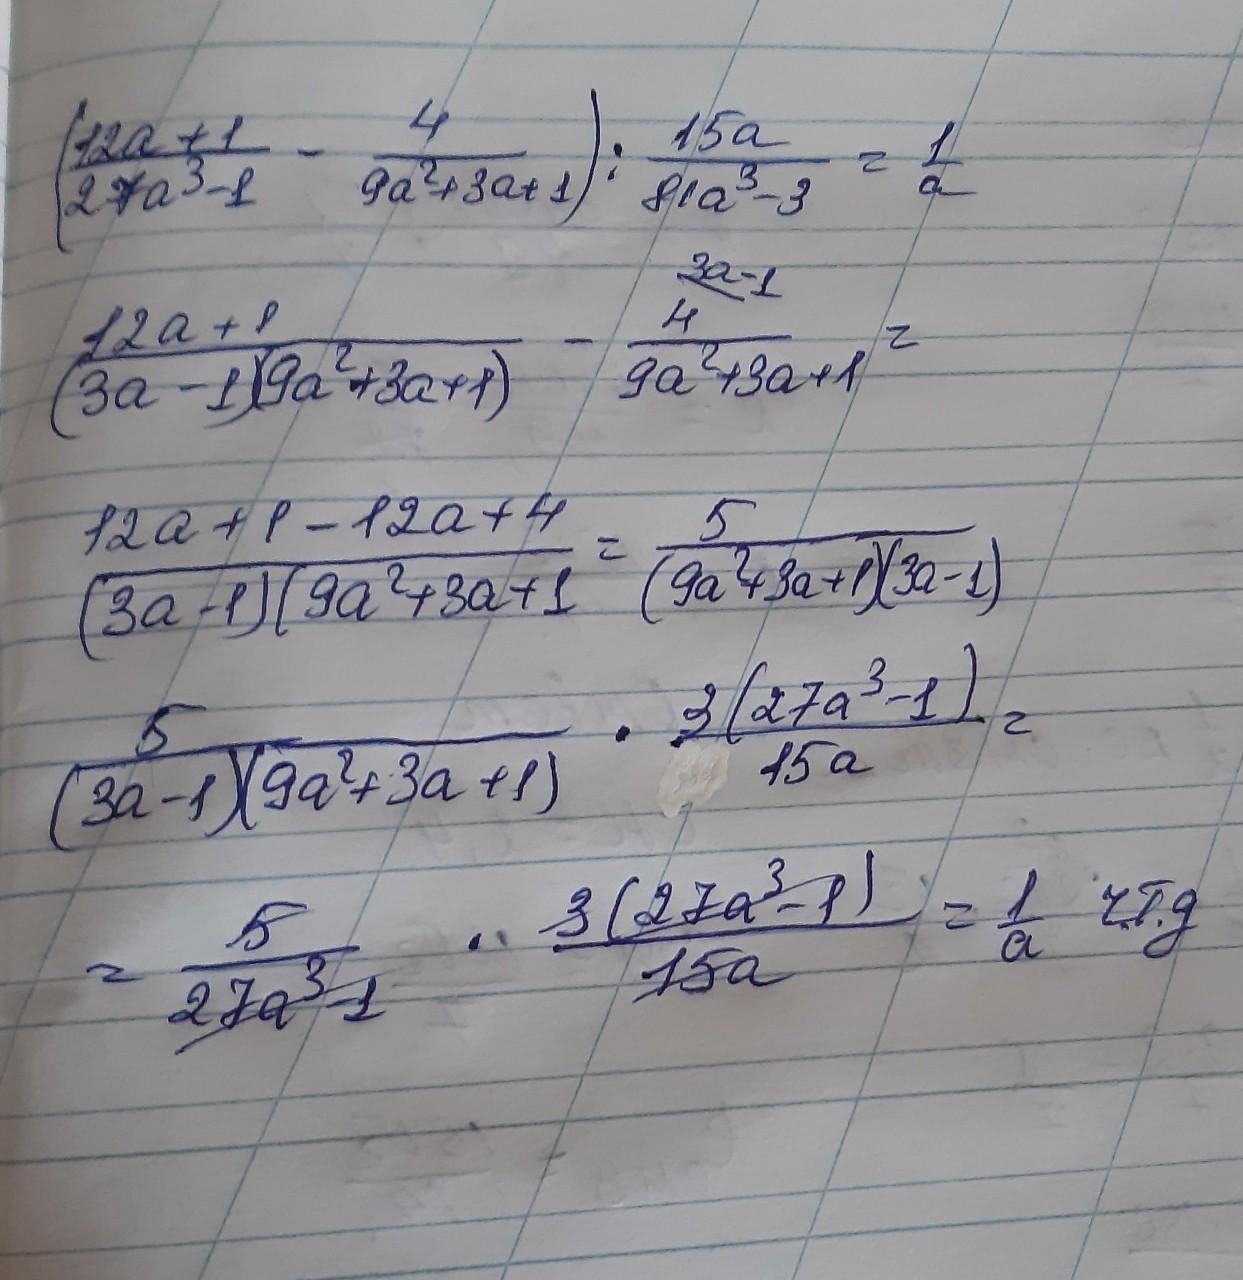 (12a+1/27a³-1 - 4/9a²+3a+1) : 15a/81a³-3 = 1/a
3a-1
12a+1/(3a-1)(9a²+3a+1) - 4/9a²+3a+1 =
12a+1-12a+4/(3a-1)(9a²+3a+1 = 5/(9a²+3a+1)(3a-1)
5/(3a-1)(9a²+3a+1) · 3(27a³-1)/15a =
= 5/27a³-1 · 3(27a³-1)/15a = 1/a ч.т.д